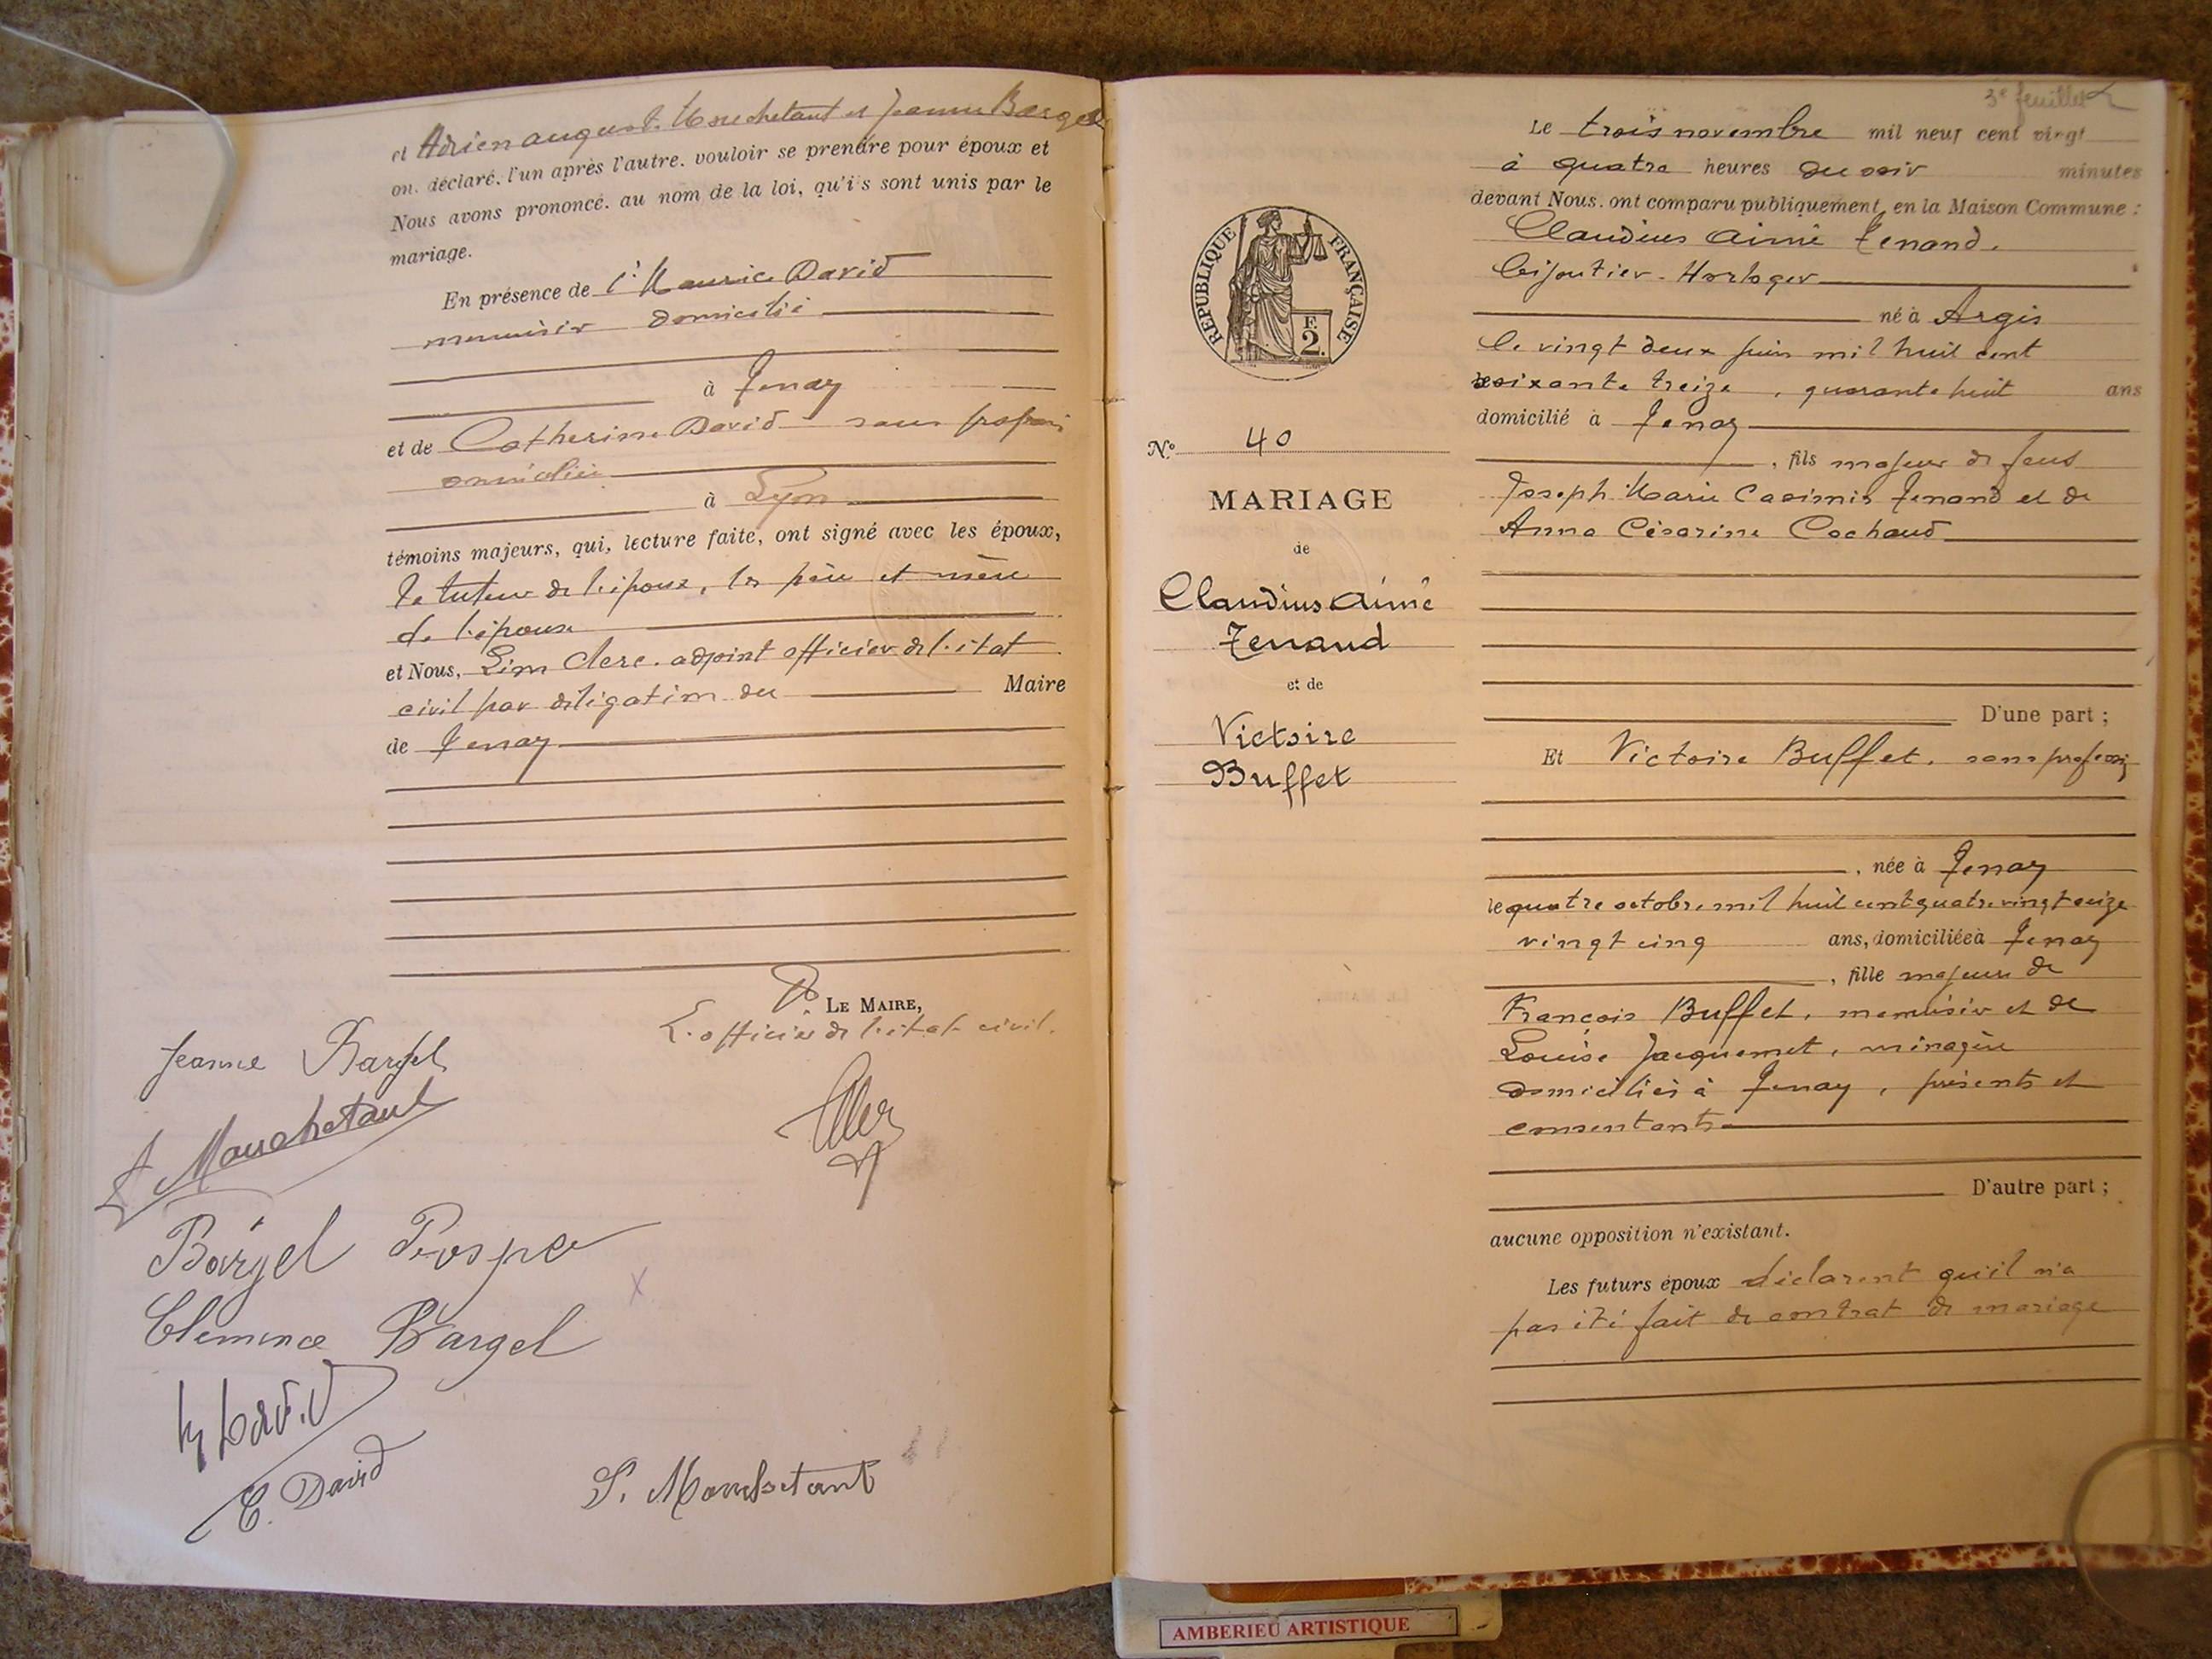 et Adrien august. Mouchetant et Jeanne Bargel
on. déclaré. l'un après l'autre. vouloir se prendre pour époux et
Nous avons prononcé. au nom de la loi, qu'i's sont unis par le
mariage.
En présence de 1° Maurice David
menuisier domicilié
à Tenay
et de Catherine David sans profession
domicilié
à Lyon
témoins majeurs, qui, lecture faite, ont signé avec les époux,
le tuteur de l'époux, les père et mère
de l'épouse
et Nous, Léon Clerc. adjoint officier de l'état
civil par délégation du Maire
de Tenay
LE MAIRE,
L'officier de l'état civil.
Jeanne Bargel
A Mouchetant
Bargel Prosper
Clemence Bargel
M David
C. David
S. Mouchetant
3e feuillet
Le trois novembre mil neuf cent vingt
à quatre heures du soir minutes
devant Nous. ont comparu publiquement en la Maison Commune :
Claudius Aimé Tenand.
bijoutier - Horloger
né à Argis
le vingt deux juin mil huit cent
soixante treize, quarante huit ans
domicilié à Tenay
, fils majeur de feus
Joseph Marie Casimir Tenand et de
Anna Césarine Cochaud
REPUBLIQUE FRANÇAISE
F. 2.
N.° 40
MARIAGE
de
Claudius Aimé
Tenand
et de
Victoire
Buffet
D'une part ;
Et Victoire Buffet. sans profession
, née à Tenay
le quatre octobre mil huit cent quatre vingt quize
vingt cinq ans, domiciliée à Tenay
, fille majeure de
François Buffet, menuisier et de
Louise Jacquemet, ménagère
domiciliés à Tenay, présents et
consentants
D'autre part ;
aucune opposition n'existant.
Les futurs époux déclarent qu'il n'a
pas été fait de contrat de mariage
AMBERIEU ARTISTIQUE